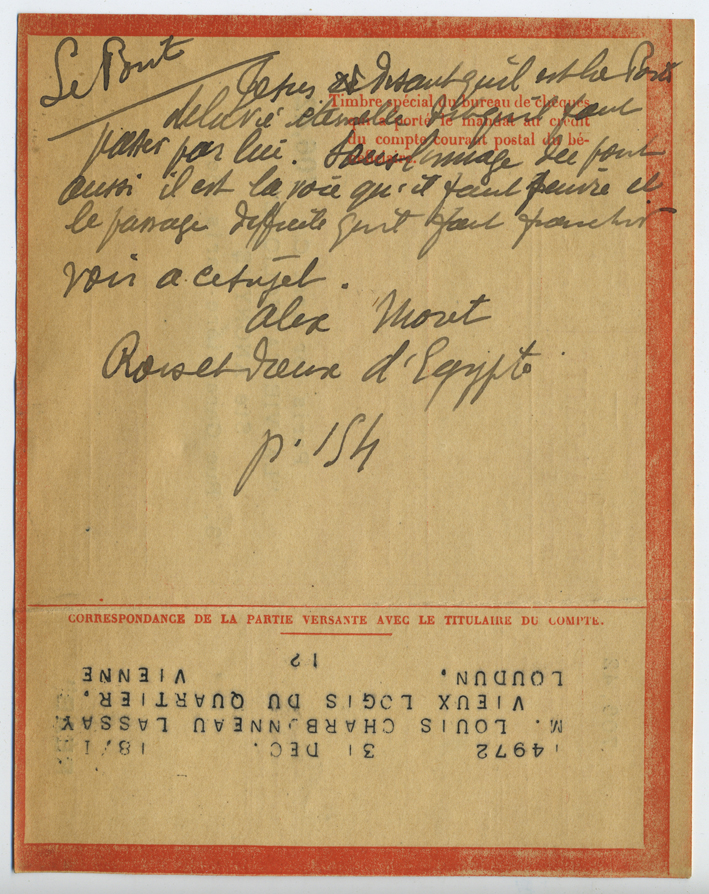 Le Pont
Jesus disant qu'il est le Pont
de la vie éternelle et qu'il faut
passer par lui. Sous l'image du pont
aussi il est la voie qu'il faut suivre et
le passage difficile qu'il faut franchir
voir a ce sujet.
Alex Moret
Rois et dieux d'Egypte
p. 154
Timbre spécial du bureau de chèques
qui a porté le mandat au crédit
du compte courant postal du bé-
néficiaire.
CORRESPONDANCE DE LA PARTIE VERSANTE AVEC LE TITULAIRE DU COMPTE.
14972 31 DEC. 18/1
M. LOUIS CHARBONNEAU LASSAY
VIEUX LOGIS DU QUARTIER.
LOUDUN. VIENNE
12